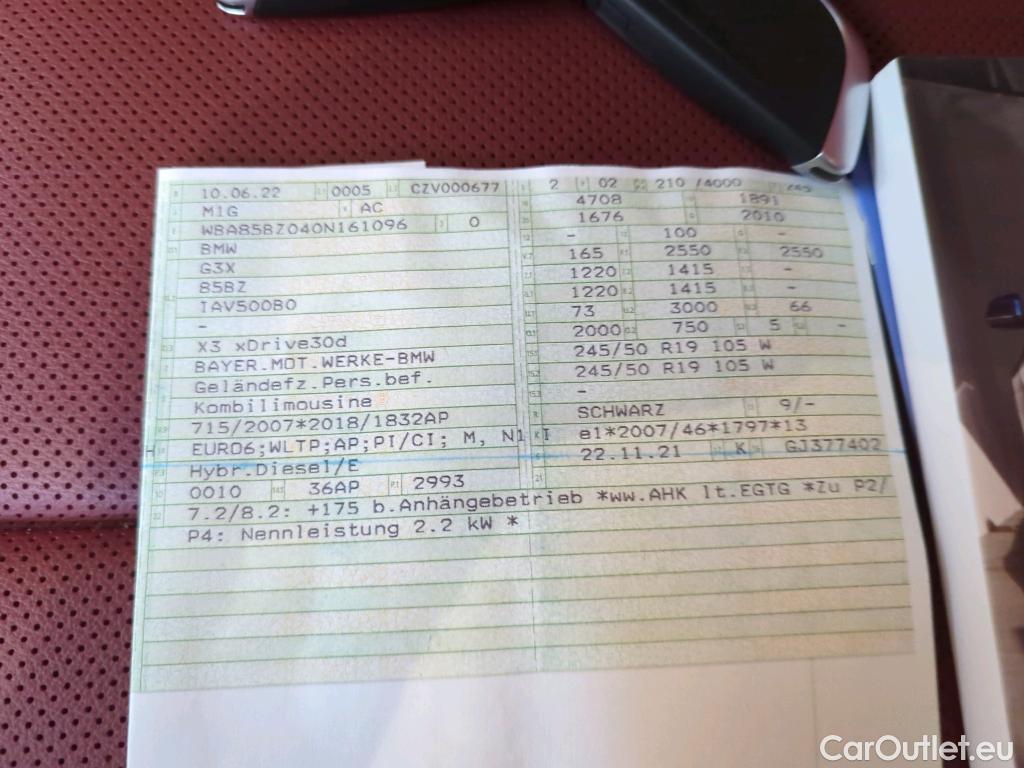 10.06.22 0005 CZV000677
M1G AC
WBA85BZ040N161096 0
BMW
G3X
85BZ
IAV500B0
-
X3 xDrive30d
BAYER.MOT.WERKE-BMW
Geländefz.Pers.bef.
Kombilimousine
715/2007*2018/1832AP
EURO6;WLTP;AP;PI/CI; M, N1 I
Hybr.Diesel/E
0010 36AP 2993
2 02 210 /4000
4708 1891
1676 2010
- 100 -
165 2550 2550
1220 1415 -
1220 1415 -
73 3000 66
2000 750 5 -
245/50 R19 105 W
245/50 R19 105 W
-
SCHWARZ 9/-
e1*2007/46*1797*13
22.11.21 K GJ377402
7.2/8.2: +175 b.Anhängebetrieb *ww.AHK lt.EGTG *Zu P2/
P4: Nennleistung 2.2 kW *
CarOutlet.eu